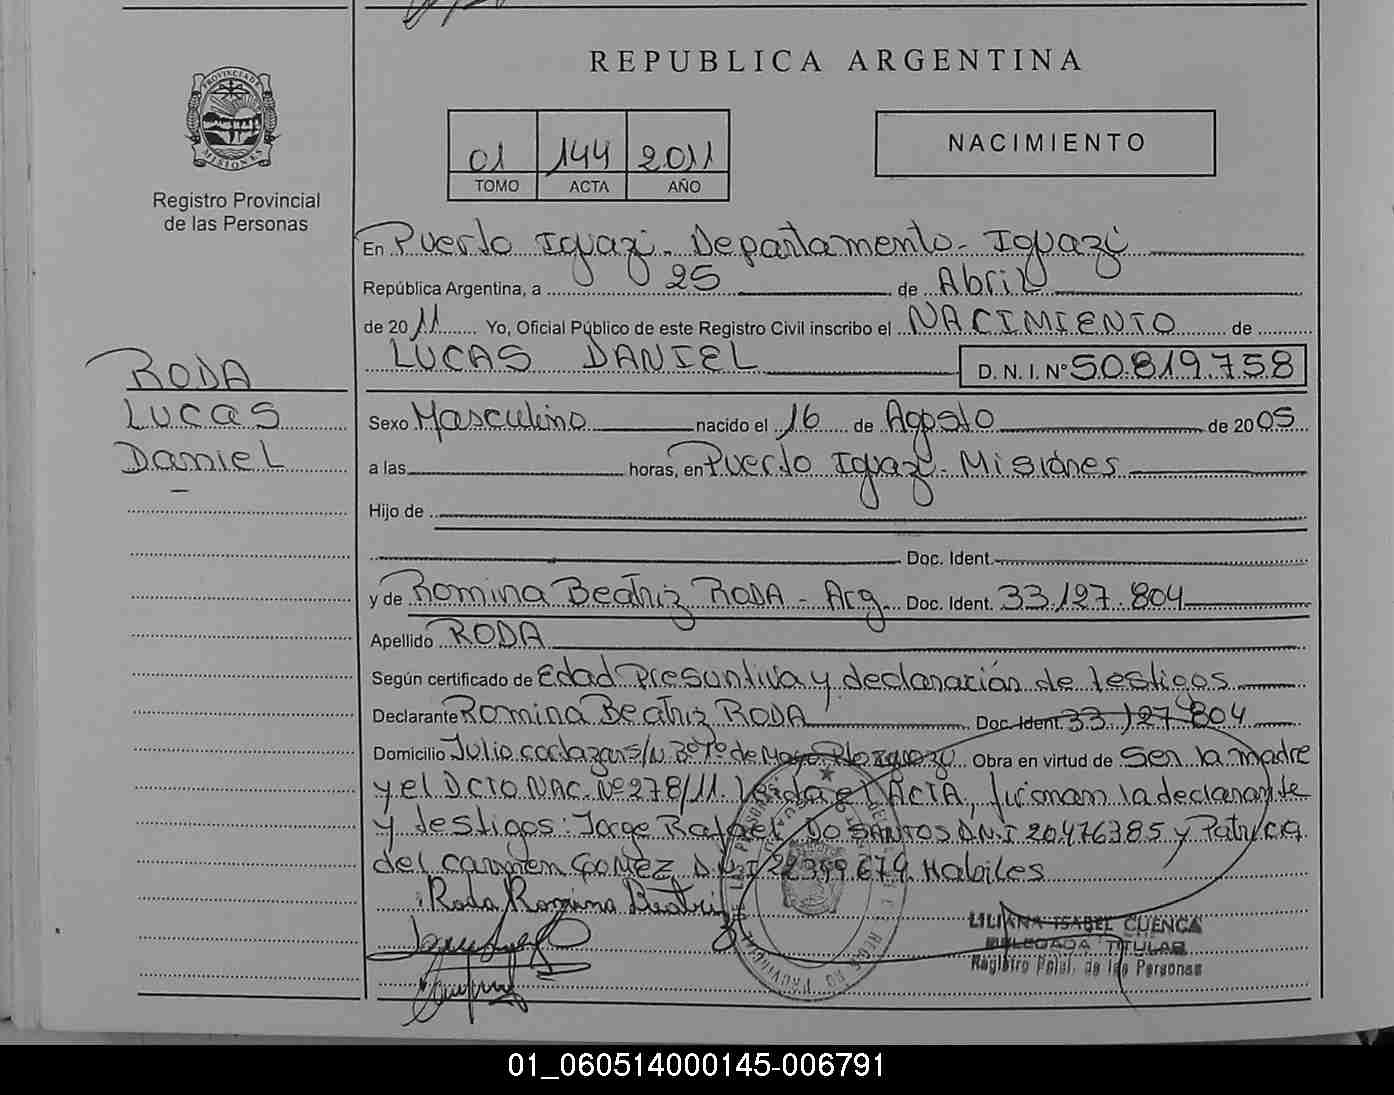 REPUBLICA ARGENTINA
PROVINCIA DE MISIONES
Registro Provincial
de las Personas
01 144 2011
TOMO ACTA AÑO
NACIMIENTO
RODA
Lucas
Daniel
En Puerto Iguazú - Departamento - Iguazú
República Argentina, a 25 de Abril
de 2011 Yo, Oficial Público de este Registro Civil inscribo el NACIMIENTO de
LUCAS DANIEL D. N. I. Nº 50.819.758
Sexo Masculino nacido el 16 de Agosto de 2005
a las horas, en Puerto Iguazú - Misiones
Hijo de
Doc. Ident.
y de Romina Beatriz RODA - Arg. Doc. Ident. 33.127.804
Apellido RODA
Según certificado de Edad Presuntiva y declaración de testigos
Declarante Romina Beatriz RODA Doc. Ident. 33.127.804
Domicilio Julio s/n Bº 1º de Mayo Pto Iguazú Obra en virtud de Ser la madre
y el DCTO NAC. Nº 278/11. Leida el ACTA, firman la declarante
y testigos: Jorge Rafael DO SANTOS D.N.I 20476385 y Patricia
del Carmen GOMEZ D.N.I Habiles
Roda Romina Beatriz
LILIANA ISABEL CUENCA
DELEGADA TITULAR
Registro Pcial. de las Personas
01_060514000145-006791